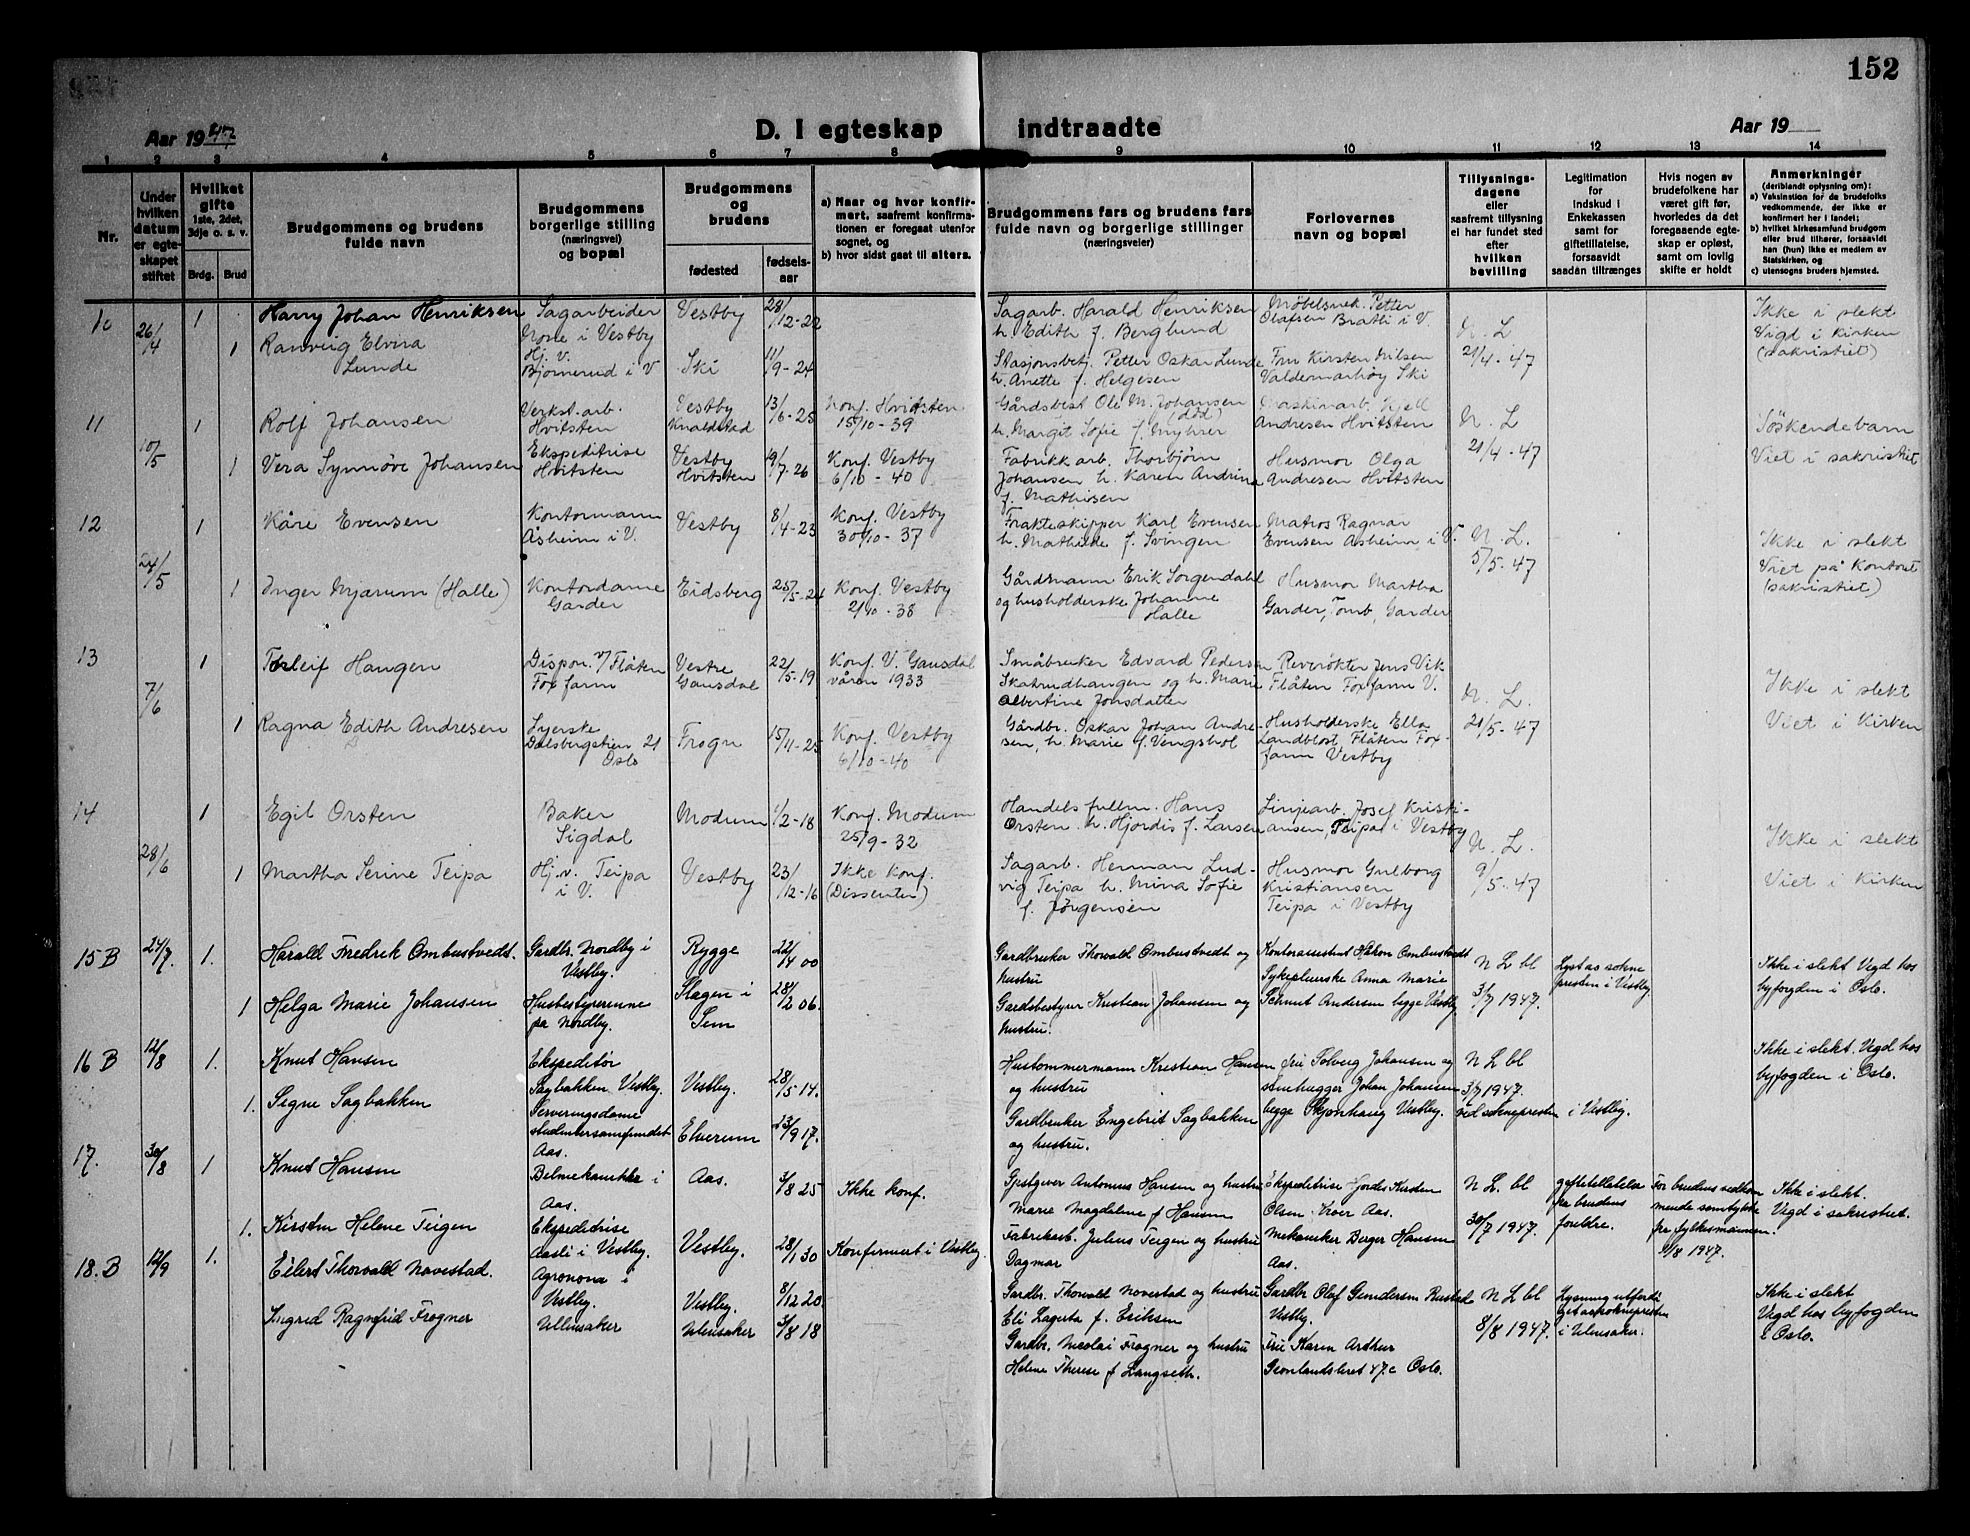 152
Aar 1947
D. I egteskap indtraadte
Aar 19
1 2 3 4 5 6 7 8 9 10 11 12 13 14
Nr.
Under hvilken datum er egteskapet stiftet
Hvilket gifte
1ste, 2det, 3dje o. s. v.
Brdg. Brud
Brudgommens og brudens fulde navn
Brudgommens borgerlige stilling (næringsvei) og bopæl
Brudgommens og brudens
fødested
fødselsaar
a) Naar og hvor konfirmert, saafremt konfirmationen er foregaat utenfor sognet, og
b) hvor sidst gaat til alters.
Brudgommens fars og brudens fars fulde navn og borgerlige stillinger (næringsveier)
Forlovernes navn og bopæl
Tillysningsdagene eller saafremt tillysning ei har fundet sted efter hvilken bevilling
Legitimation for Indskud i Enkekassen samt for giftetillatelse, forsaavidt saadan tiltrænges
Hvis nogen av brudefolkene har været gift før, hvorledes da det foregaaende egteskap er opløst, samt om lovlig skifte er holdt
Anmerkninger
(deriblandt oplysning om):
a) Vaksination for de brudefolks vedkommende, der ikke er konfirmert her i landet;
b) hvilket kirkesamfund brudgom eller brud tilhører, forsaavidt han (hun) ikke er medlem av Statskirken, og
c) utensogns bruders hjemsted.
10 26/4 1 Harry Johan Henriksen Sagarbeider Mosse i Vestby Vestby 28/12-22
Sagarb. Harald Henriksen h. Edith f. Berglund
Møbelsnek. Petter Olafsen Bratli i V.
N. L 21/4-47
Ikke i slekt
Vigd i Kirken (sakristiet)
1 Ranveig Elvira Lunde Hj. v. Bjørnerud i V Ski 11/9-24
Stasjonsbetj. Petter Oskar Lunde h. Anette f. Helgesen
Fru Kirsten Nilsen Valdemarhøy Ski
11 10/5 1 Rolf Johansen Verkst.arb. Hvitsten Vestby Knaldstad 13/6-25 Konf. Hvitsten 15/10-39
Gårdsbest Ole M. Johansen (død) h. Margit Sofie f. Myhrer
Maskinarb. Kjell Andresen Hvitsten
N. L 21/4-47
Søskendebarn
Viet i sakristiet
1 Vera Synnøve Johansen Ekspeditrise Hvitsten Vestby Hvitsten 19/7-26 Konf. Vestby 6/10-40
Fabrikkarb. Thorbjørn Johansen h. Karen Andrina f. Mathisen
Husmor Olga Andresen Hvitsten
12 24/5 1 Kåre Evensen Kontormann Åsheim i V. Vestby 8/4-23 Konf. Vestby 30/10-37
Frakteskipper Karl Evensen h. Mathilde f. Svingen
Matros Ragnar Evensen Åsheim i V.
N. L. 5/5-47
Ikke i slekt
Viet på kontoret (sakristiet)
1 Inger Mjærum (Halle) Kontordame Garder Eidsberg 25/5-24 Konf. Vestby 2/10-38
Gårdmann Erik Sorgendahl og husholderske Johanne Halle
Husmor Martha Garder, Tomb, Garder
13 7/6 1 Torleif Haugen Dispon. v/ Flåten Fox farm Vestre Gausdal 22/5-19 Konf. V. Gausdal våren 1933
Småbruker Edvard Pedersen Skatrudhaugen og h. Marie Albertine Jonsdatter
Reverøkter Jens Vik Flåten Foxfarm V.
N. L. 21/5-47
Ikke i slekt
Viet i Kirken
1 Ragna Edith Andresen Syerske Dalsbergstien 21 Oslo Frogn 15/11-25 Konf. Vestby 6/10-40
Gårdbr. Oskar Johan Andresen, h. Marie f. Vengshol
Husholderske Ella Landblost, Flåten Foxfarm Vestby
14 28/6 1 Egil Orsten Baker Sigdal Modum 1/2-18 Konf. Modum 25/9-32
Handels fullm. Hans Orsten h. Hjördis f. Larsen
Linjearb. Josef Kristiansen, Teipa i Vestby
N. L. 9/5-47
Ikke i slekt
Viet i Kirken
1 Martha Serine Teipa Hj.v. Teipa i V. Vestby 23/12-16 Ikke konf. (Dissenter)
Sagarb. Herman Ludvig Teipa h. Mina Sofie f. Jørgensen
Husmor Gulborg Kristiansen Teipa i Vestby
15 B 24/7. 1. Harald Fredrik Ombustvedt. Gardbr. Nordby i Vestby. Rygge 22/4 00
Gardbruker Thorvald Ombustvedt og hustru
Kontorassistent Håkon Ombustvedt
N L bl 3/7 1947.
Lyst av sokneprestin i Vestby.
Ikke i slekt Vegd hos byfogden i Oslo.
1 Helga Marie Johansen Husbestyrerinne pa Nordby. Slagen i Sem 28/2 06.
Gardsbestyrer Kristian Johansen og hustru.
Sykepleierske Anna Marie Schmut Andersen begge Vestby.
16 B 12/8 1. Knut Hansen Ekspeditør Sagbakken Vestby. Vestby. 28/5 14.
Hustommermann Kristian Hansen og hustru
Fru Solveig Johansen og stenhugger Johan Johansen begge Skjønhaug Vestby.
N L bl 3/7 1947. ved soknepresten i Vestby.
Ikke i slekt. Vegd hos byfogden i Oslo.
1. Signe Sagbakken Serveringsdame studentersamfundet Aas. Elverum 23/9 17.
Gardbruker Engebrit Sagbakken og hustru.
17. 30/8 1 Knut Hansen Bilmekanikker i Aas. Aas. 3/8 25 Ikke konf.
Gjestgiver Antonius Hansen og hustru Marie Magdalene f Hansen
Ekspeditrise Hjordis Kirsten Olsen Kroer Aas.
N L. bl 30/7 1947.
giftetillatelse fra brudens foreldre.
For brudens vedkommende samtykke fra fylkesmannen. 9/8 1947.
Ikke i slekt.
Vegd i sakristiet.
1. Kirsten Helene Teigen Ekspeditrise Aasli i Vestby. Vestby. 28/1 30 Konfirmert i Vestby.
Fabrikarb. Julius Teigen og hustru Dagmar
Mekaniker Birger Hansen Aas.
18. B 12/9 1. Eilert Thorvald Navestad. Agronom i Vestby. Vestby. 8/12 20.
Gardbr. Thorvald Navestad og hustru Eli Laguta f. Eriksen
Gardbr. Olaf Gundersen Rustad Vestby.
N L bl 8/8 1947.
Lysning utferdiget av soknepresten i Ulensaker.
Ikke i slekt
Vegd hos byfogden i Oslo.
Ingrid Ragnfrid Frogner Ullensaker Ulensaker 3/8 18
Gardbr. Nicolai Frogner og hustru Helene Therese f Langseth.
Frü Karin Arthur Grønlandsleret 47.c Oslo.